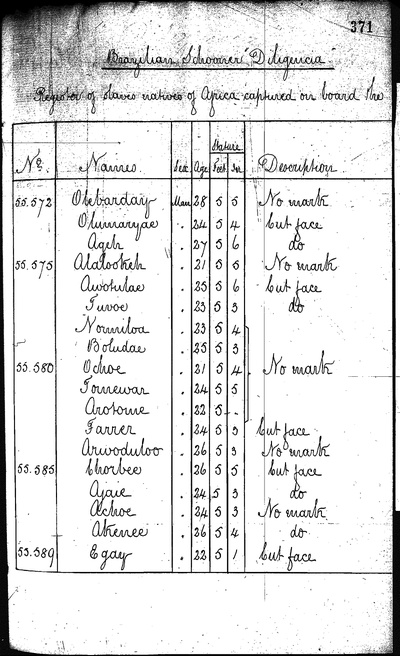 371
Brazilian Schooner "Diligencia"
Register of slaves natives of Africa captured on board the
Stature
No. Names Sex Age Feet In Description
55.572 Olebarday Man 28 5 5 No mark
Olumaryae . 24 5 4 Cut face
Ageh . 27 5 6 do
55.575 Alalookeh . 21 5 5 No mark
Awotulae . 25 5 6 Cut face
Tuvoe . 23 5 3 do
Nomiloa . 23 5 4
Boludae . 25 5 3
55.580 Ochoe . 21 5 4 No mark
Tomewar . 24 5 5
Arotome . 22 5 ..
Farrer . 24 5 3 Cut face
Arwoduloo . 26 5 3 No mark
55.585 Chorbee . 26 5 5 Cut face
Ajaie . 24 5 3 do
Achoe . 24 5 3 No mark
Akenee . 26 5 4 do
55.589 Egay . 22 5 1 Cut face